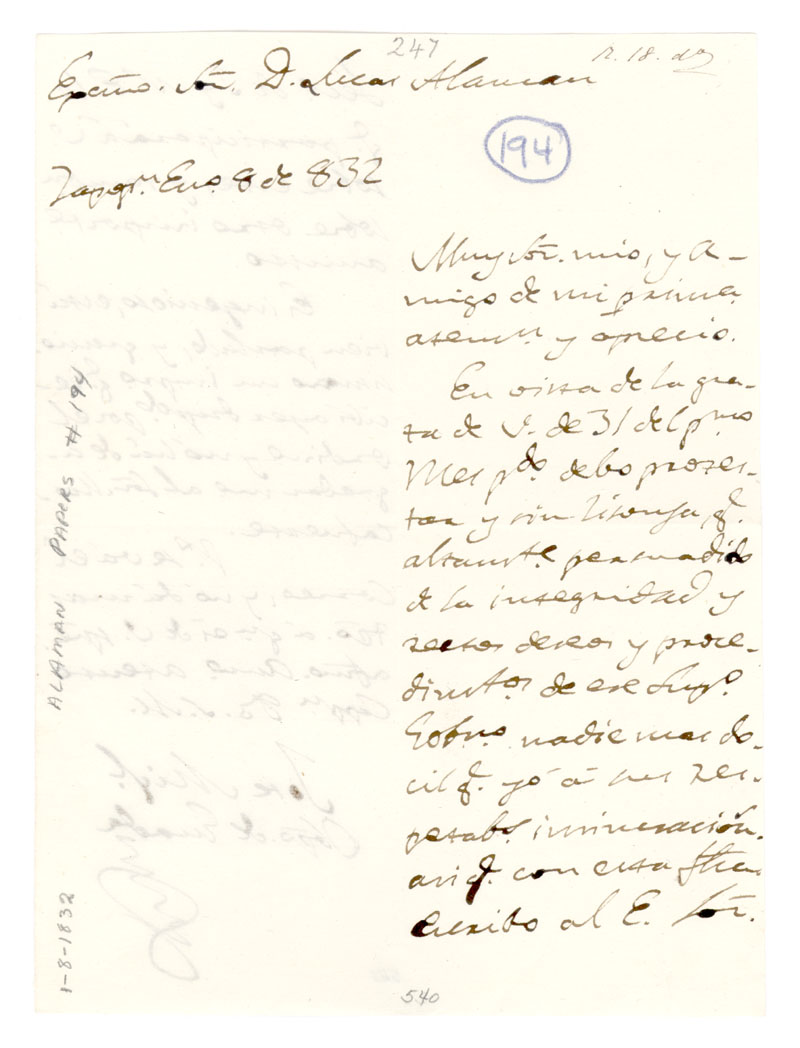 247
R. 18. do
Excmo. Sor. D. Lucas Alaman
194
Zapqn. Eno. 8 de 832
Muy Sor. mio, y a-
migo de mi primera
atencn. y aprecio.
En vista de la gra-
ta de V. de 31 del pmo
Mes pdo. debo protes-
tar y sin lisonja, q.
altamte. persuadido
de la integridad y
rectos deseos y proce-
dimtos. de ese Supo.
Gobno. nadie mas do-
cil q. yó á sus res-
petabs. insinuación.
asi q. con esta fha
escribo al E. Sor.
540
ALAMAN PAPERS # 194
1-8-1832